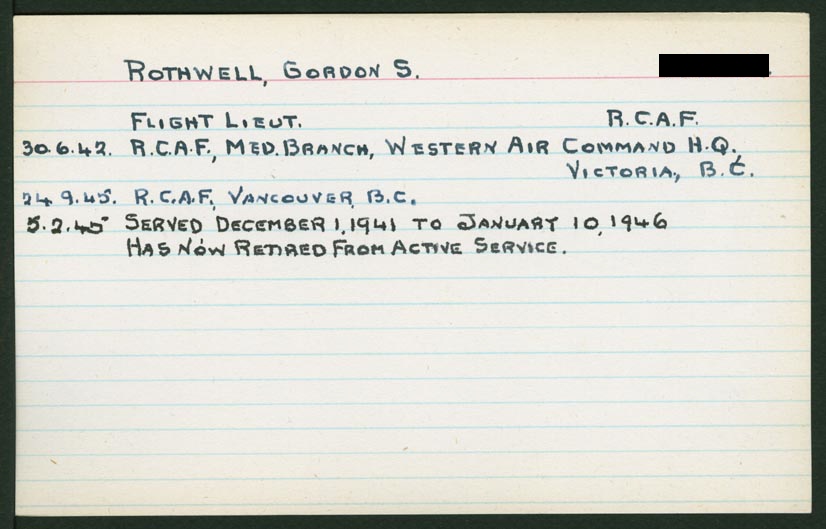 ROTHWELL, GORDON S.
FLIGHT LIEUT. R.C.A.F.
30.6.42. R.C.A.F., MED. BRANCH, WESTERN AIR COMMAND H.Q.
VICTORIA, B.C.
24.9.45. R.C.A.F, VANCOUVER, B.C.
5.2.45 SERVED DECEMBER 1, 1941 TO JANUARY 10, 1946
HAS NOW RETIRED FROM ACTIVE SERVICE.